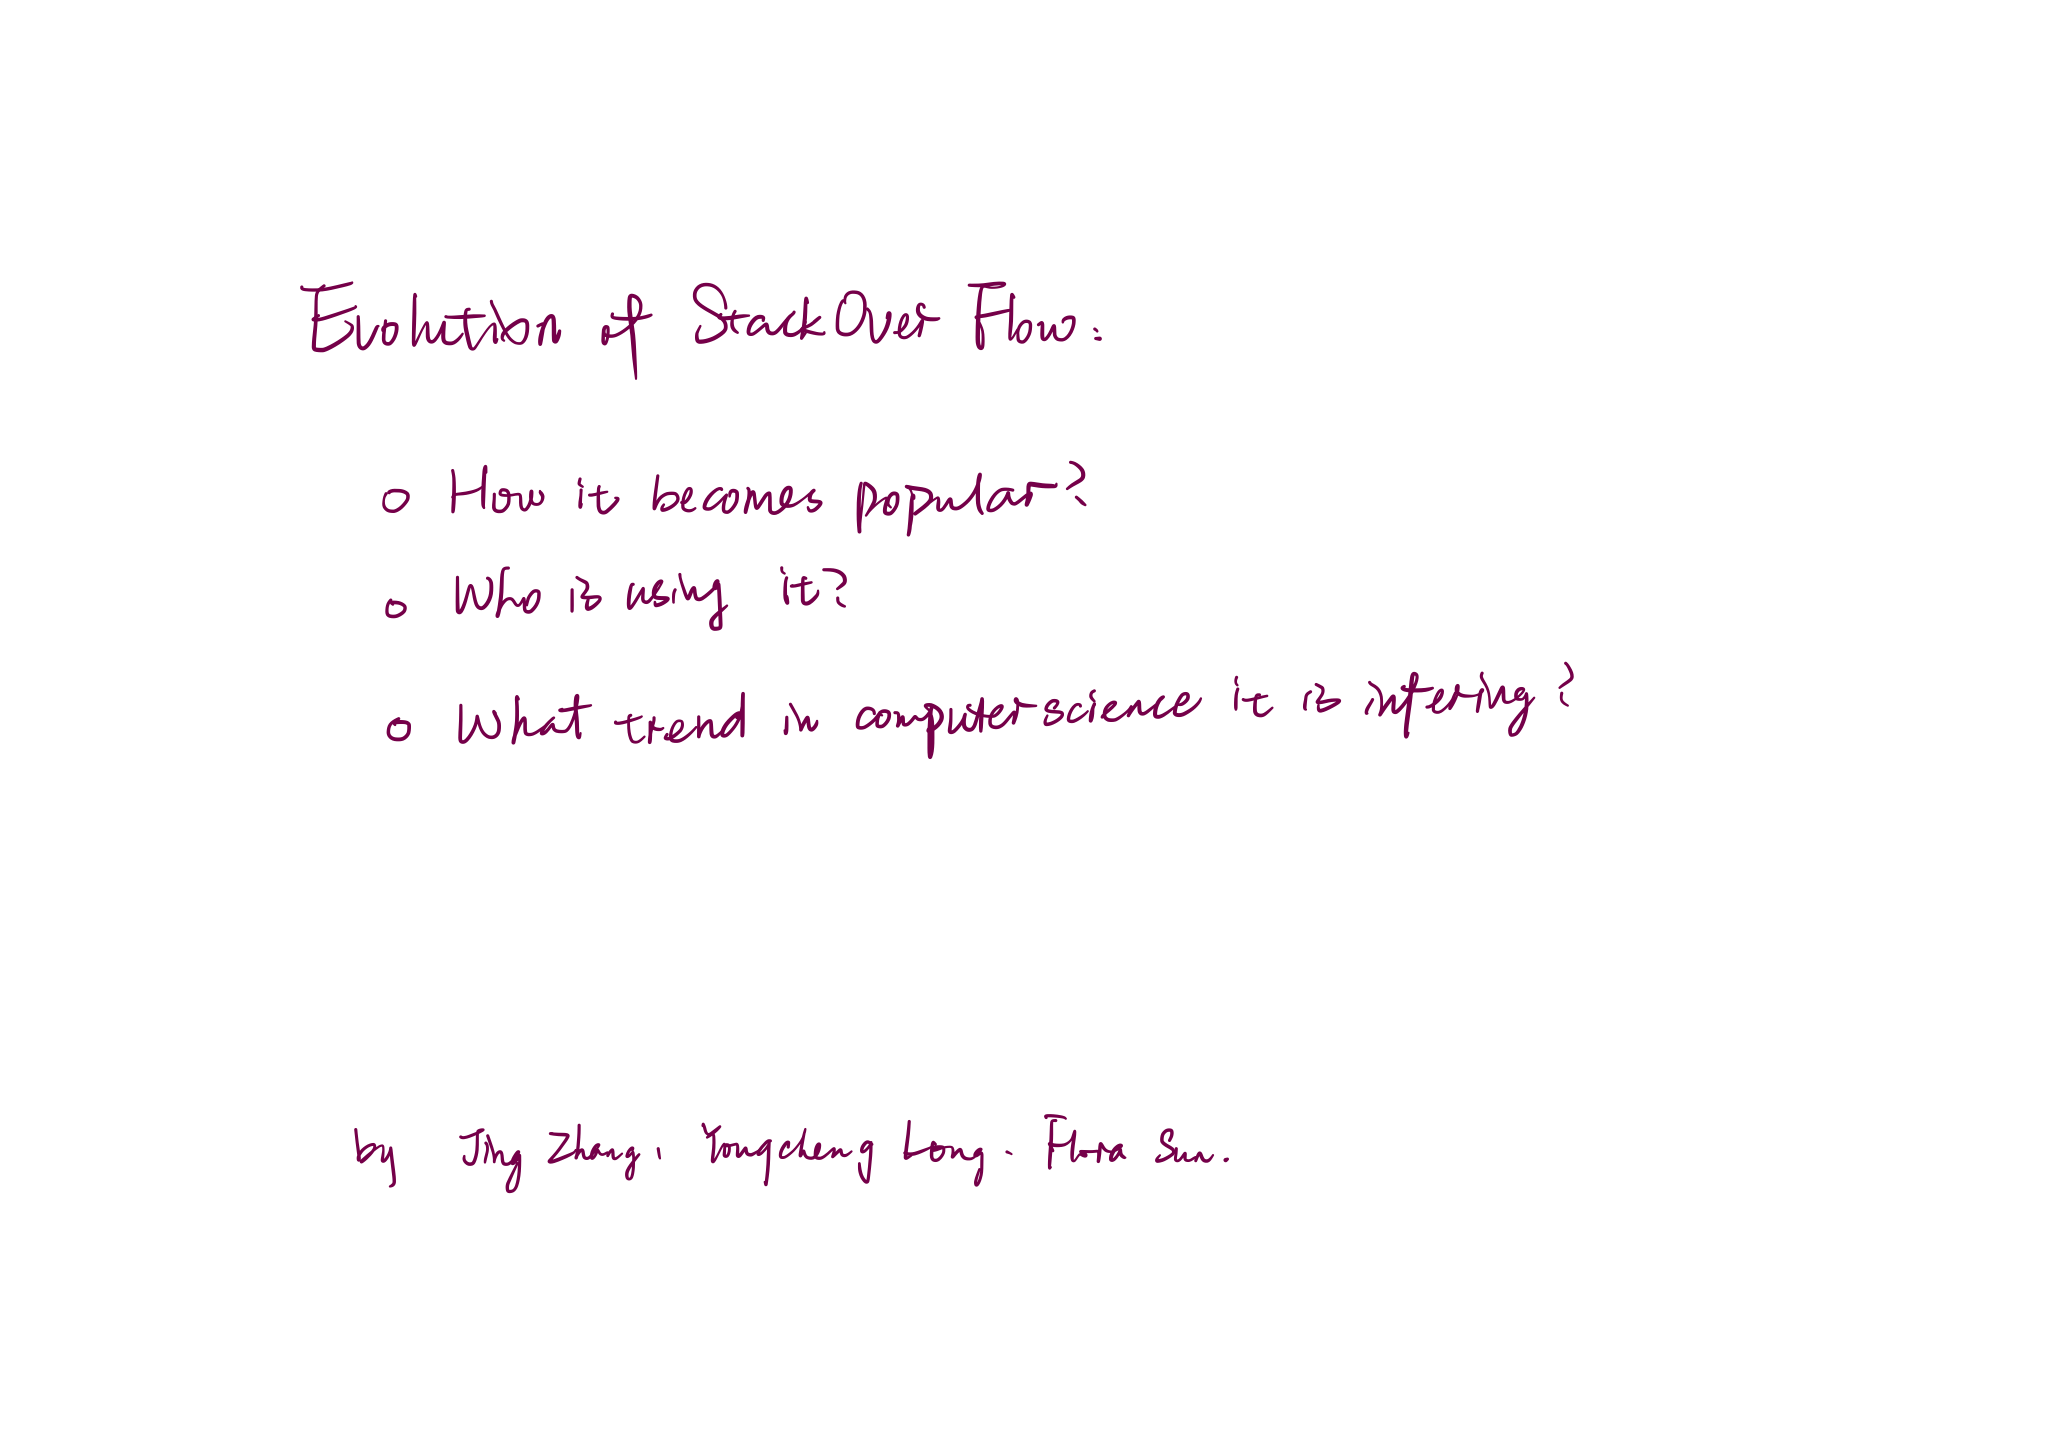 Evolution of StackOver Flow:
o How it becomes popular?
o Who is using it?
o What trend in computer science it is infering?
by Jing Zhang, Yongcheng Long. Flora Sun.